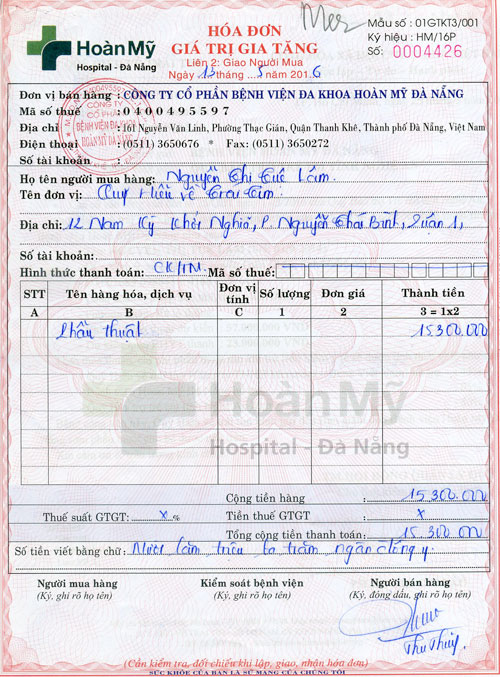 Mẫu số : 01GTKT3/001
Ký hiệu : HM/16P
Số: 0004426
HoànMỹ
Hospital - Đà Nẵng
HÓA ĐƠN
GIÁ TRỊ GIA TĂNG
Liên 2: Giao Người Mua
Ngày 13 tháng 5 năm 2016
Đơn vị bán hàng : CÔNG TY CỔ PHẦN BỆNH VIỆN ĐA KHOA HOÀN MỸ ĐÀ NẴNG
Mã số thuế : 0400495597
Địa chỉ : 161 Nguyễn Văn Linh, Phường Thạc Gián, Quận Thanh Khê, Thành phố Đà Nẵng, Việt Nam
Điện thoại : (0511) 3650676 * Fax: (0511) 3650272
Số tài khoản :
CÔNG TY
CỔ PHẦN
BỆNH VIỆN ĐA KHOA
HOÀN MỸ ĐÀ NẴNG
Họ tên người mua hàng: Nguyễn Thị Lâm
Tên đơn vị: Quỹ Hiểu về Trái Tim
Địa chỉ: 12 Nam Kỳ Khởi Nghĩa, P. Nguyễn Thái Bình, Quận 1,
Số tài khoản:
Hình thức thanh toán: CK/TM Mã số thuế:
STT Tên hàng hóa, dịch vụ Đơn vị tính Số lượng Đơn giá Thành tiền
A B C 1 2 3 = 1x2
Phẫu thuật 15.300.000
HoànMỹ
Hospital - Đà Nẵng
Cộng tiền hàng : 15.300.000
Thuế suất GTGT: x % Tiền thuế GTGT : x
Tổng cộng tiền thanh toán: 15.300.000
Số tiền viết bằng chữ : Mười lăm triệu ba trăm ngàn đồng y.
Người mua hàng Kiểm soát bệnh viện Người bán hàng
(Ký, ghi rõ họ tên) (Ký, ghi rõ họ tên) (Ký, đóng dấu, ghi rõ họ tên)
Thu Thủy
(Cần kiểm tra, đối chiếu khi lập, giao, nhận hóa đơn)
SỨC KHỎE CỦA BẠN LÀ SỨ MẠNG CỦA CHÚNG TÔI